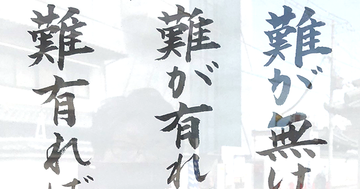 難が無け
難が有れ
難有れば